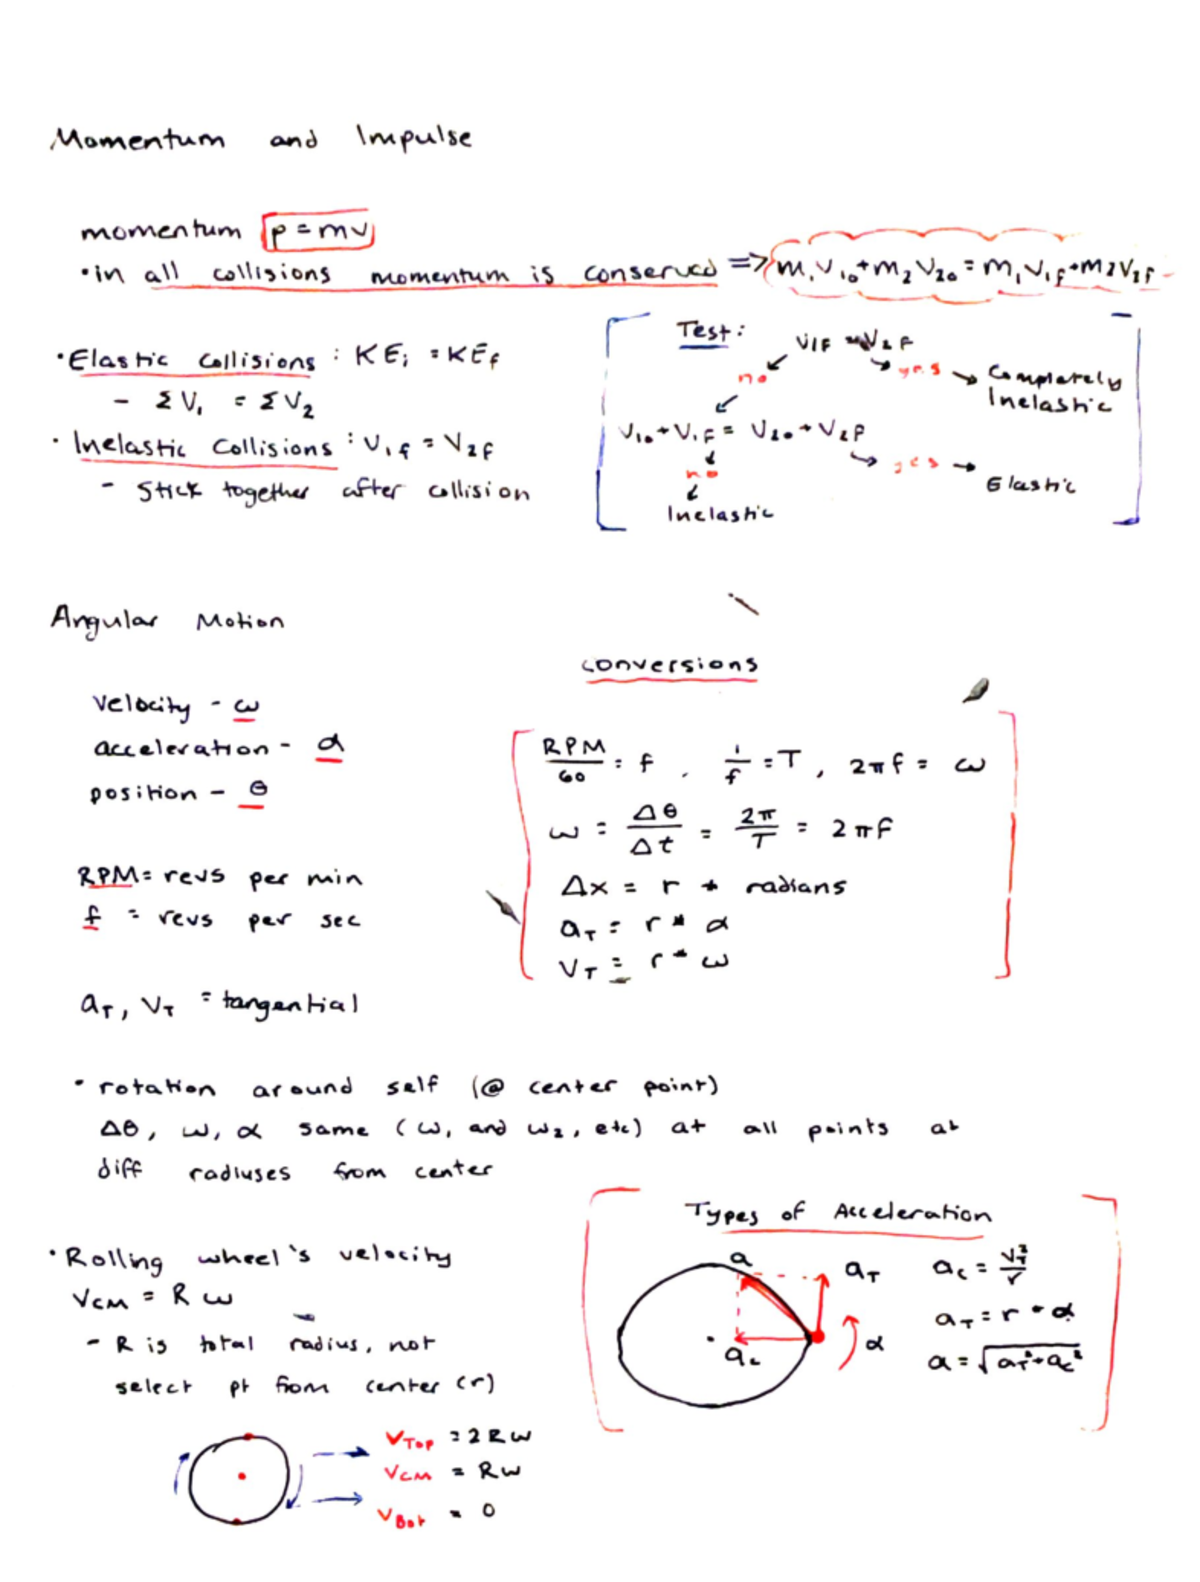 Momentum and Impulse
momentum p = mv
• in all collisions momentum is conserved => m₁V₁₀ + m₂V₂₀ = m₁V₁f + m₂V₂f
• Elastic Collisions : KEi = KEf
- ΣV₁ = ΣV₂
• Inelastic Collisions : V₁f = V₂f
- Stick together after collision
Test:
V1F = V2F
no
yes → Completely
Inelastic
V₁₀ + V₁F = V₂₀ + V₂F
no
yes → Elastic
Inelastic
Angular Motion
velocity - ω
acceleration - α
position - θ
RPM = revs per min
f = revs per sec
aT, VT = tangential
Conversions
RPM/60 = f , 1/f = T , 2πf = ω
ω = Δθ/Δt = 2π/T = 2πf
Δx = r * radians
aT = r * α
VT = r * ω
• rotation around self (@ center point)
Δθ, ω, α same (ω₁ and ω₂, etc) at all points at
diff radiuses from center
• Rolling wheel's velocity
VCM = R ω
- R is total radius, not
select pt from center (r)
VTop = 2Rω
VCM = Rω
VBot = 0
Types of Acceleration
a
aT
ac
α
ac = VT²/r
aT = r * α
a = √aT² + ac²